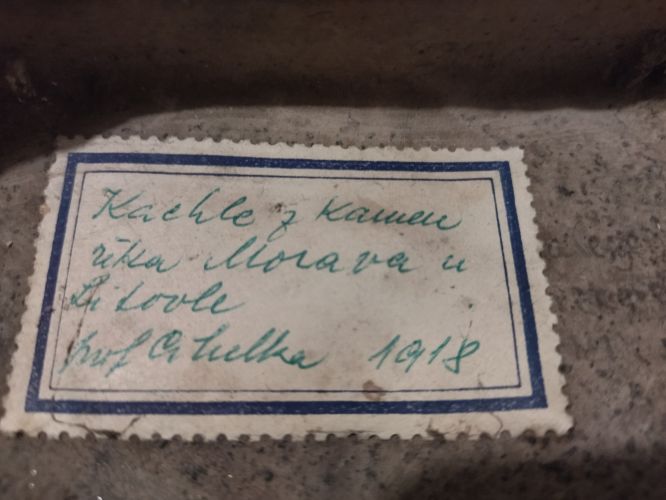 Kachle z Kamen
řeka Morava u
Litovle
prof 1918